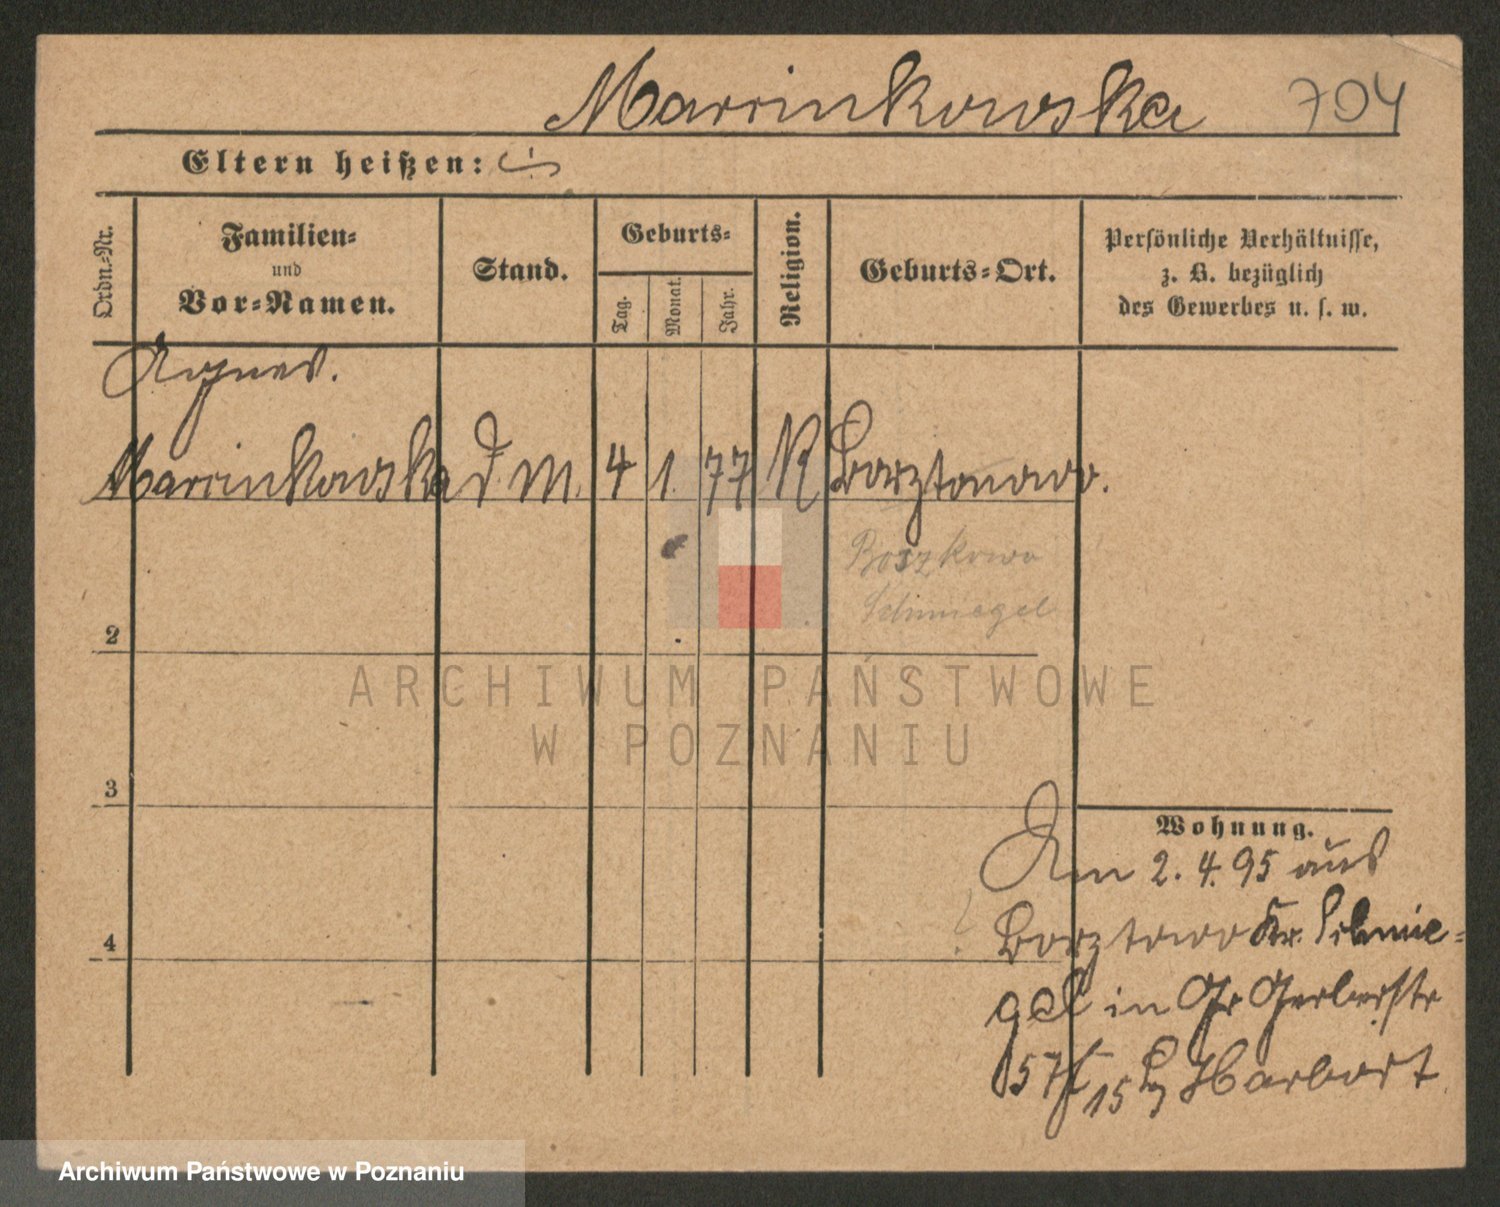 Marcinkowska 704
Eltern heißen:
Ordn.-Nr.
Familien-
und
Vor-Namen.
Stand.
Geburts-
Tag.
Monat.
Jahr.
Religion.
Geburts-Ort.
Persönliche Verhältnisse,
z. B. bezüglich
des Gewerbes u. s. w.
Agnes.
Marcinkowska d. M. 4 1. 77 K
Boszkowo
Schmiegel
2
ARCHIWUM PAŃSTWOWE
W POZNANIU
3
Wohnung.
Am 2. 4. 95 aus
Kr. Schmie-
4
gel in Gr Gerberstr
57 15 Harbart
Archiwum Państwowe w Poznaniu